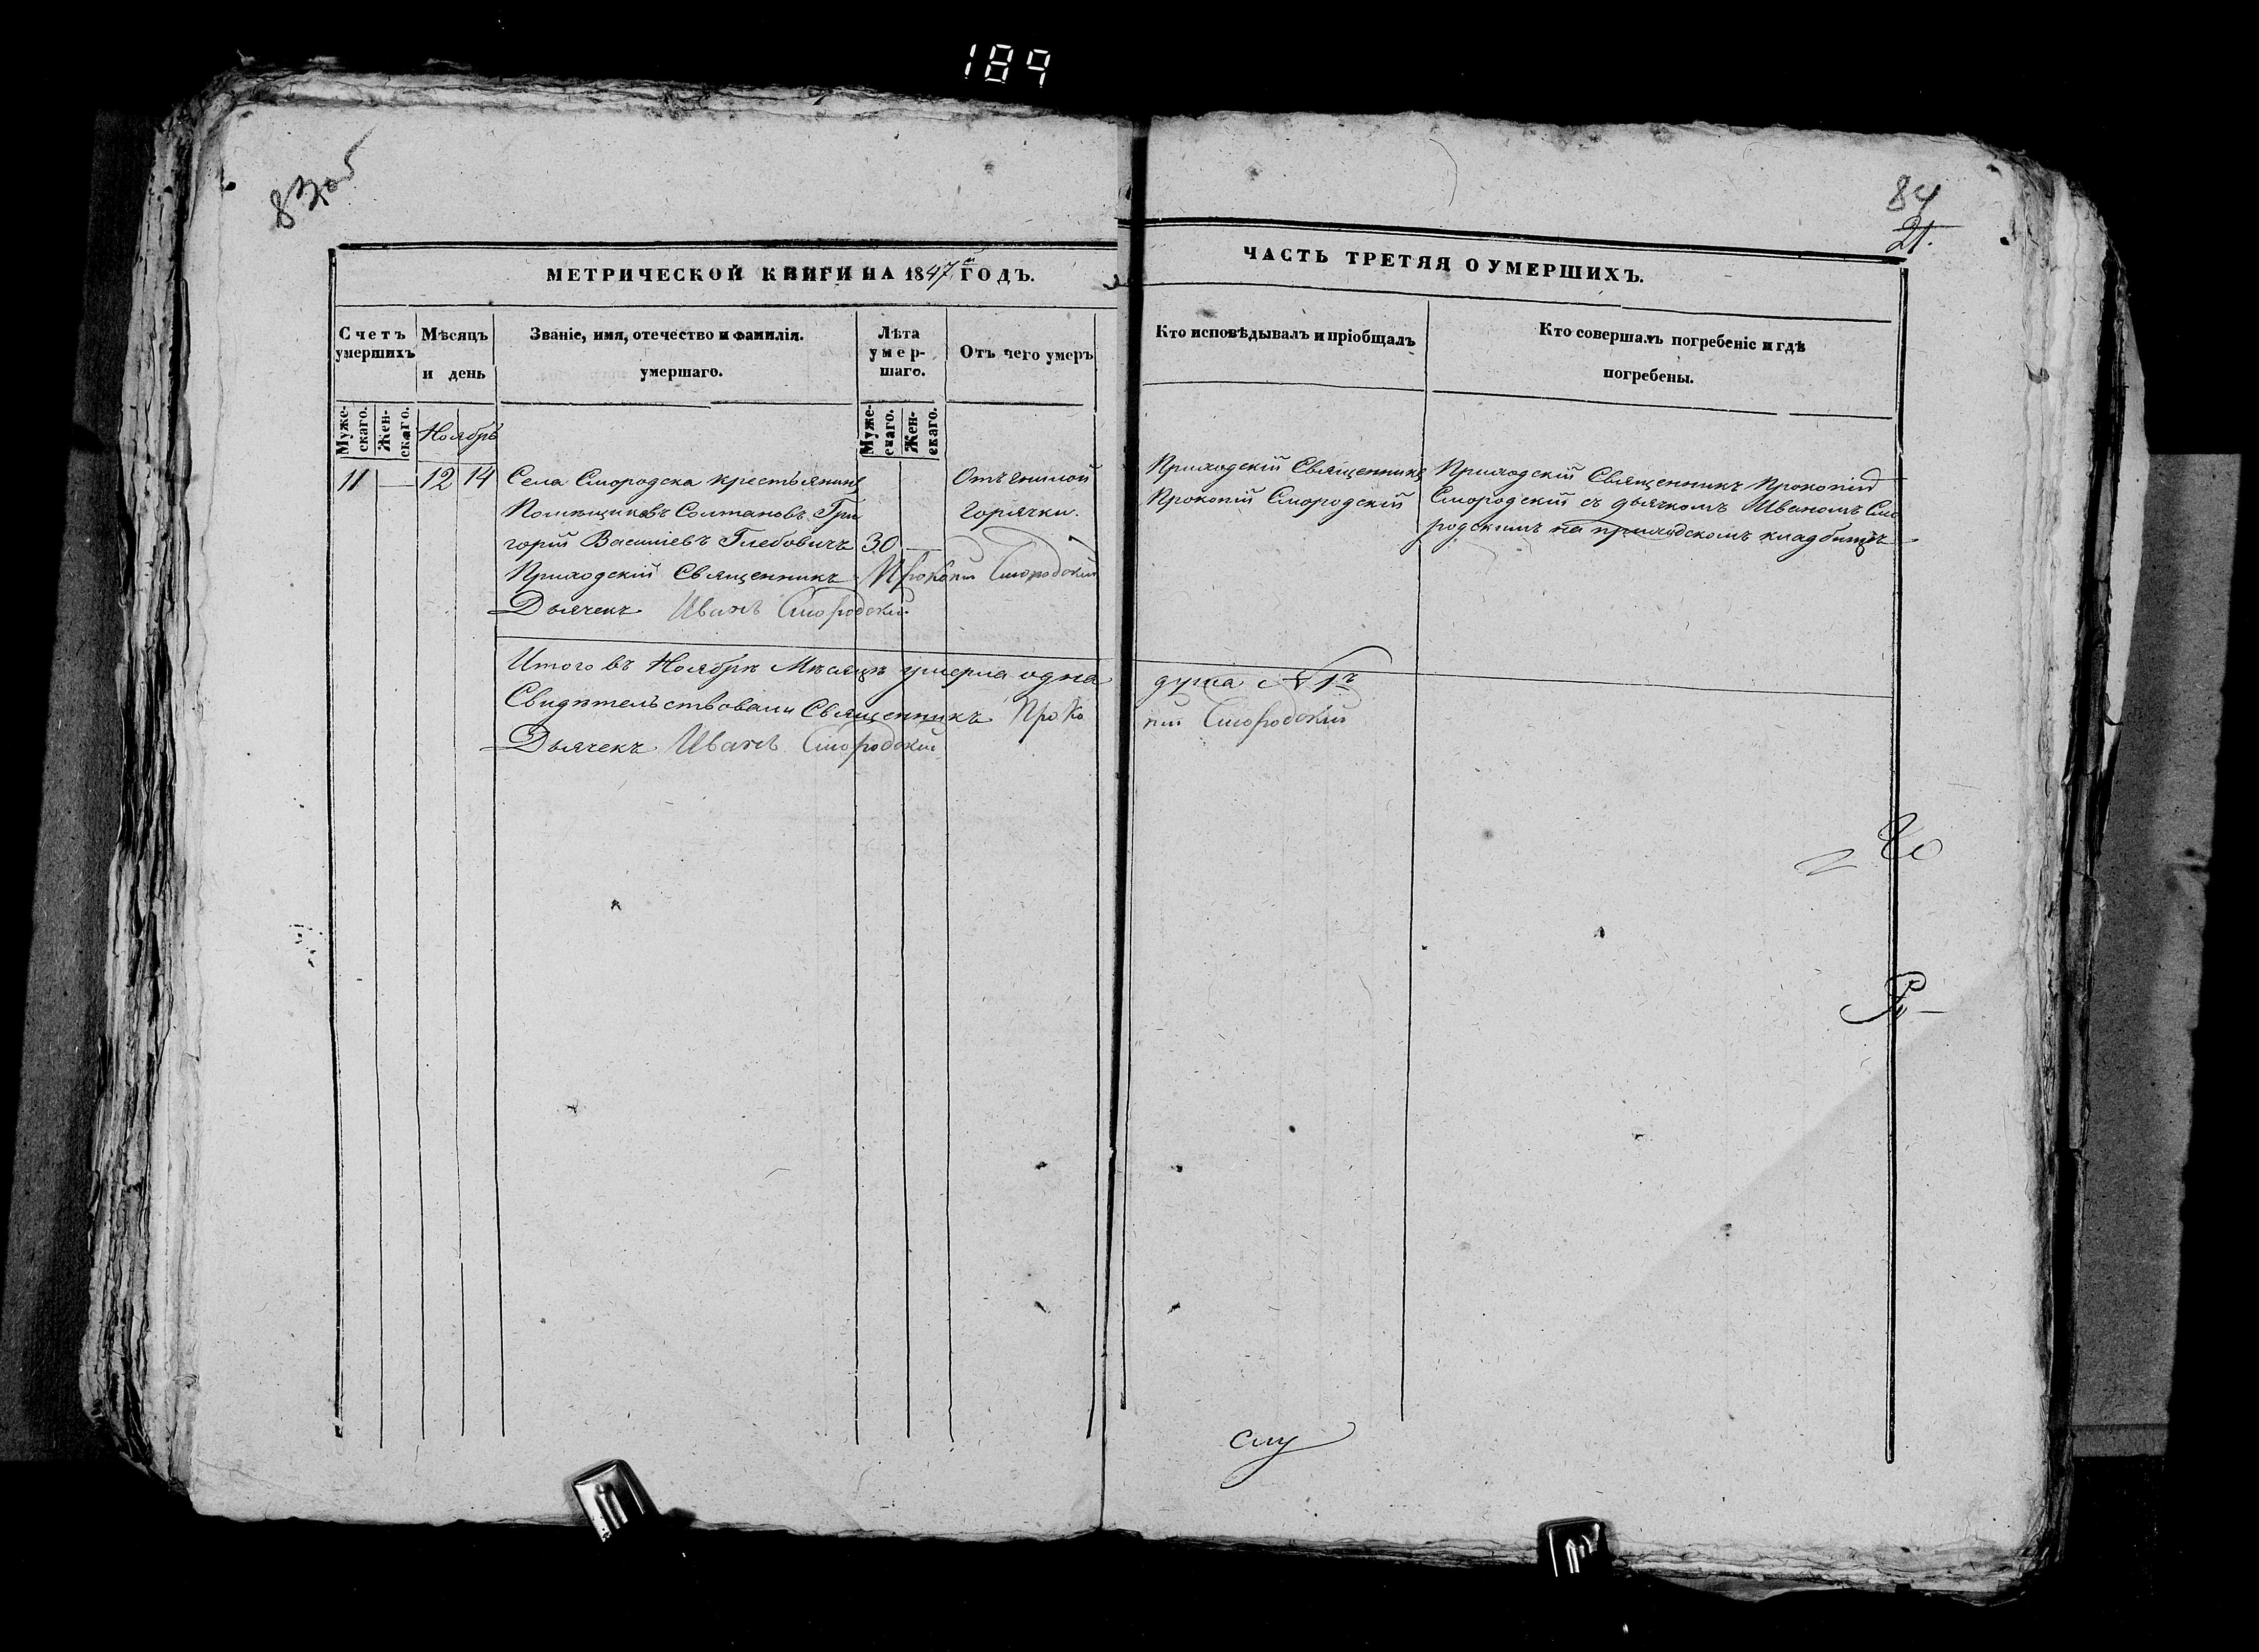 189
83об
84
21.
МЕТРИЧЕСКОЙ КНИГИ НА 1847й ГОДЪ.
ЧАСТЬ ТРЕТЯЯ О УМЕРШИХЪ.
Счетъ умершихъ
Мѣсяцъ и день
Званіе, имя, отечество и фамилія. умершаго.
Лѣта умер-шаго.
Отъ чего умеръ
Кто исповѣдывалъ и пріобщалъ
Кто совершалъ погребеніе и гдѣ погребены.
Муже-скаго.
Жен-скаго.
Ноябрь
Муже-скаго.
Жен-скаго.
11 — 12 14
Села Смородска крестьянинъ
Помѣщиковъ Солтановъ Гри
горій Васильевъ Глебовичъ 30 —
Отъ гнилой
горячки.
Приходскій Священникъ
Прокопій Смородскій
Приходскій Священникъ Прокопій
Смородскій съ дьячкомъ Иваномъ Смо
родскимъ на приходскомъ кладбищѣ
Приходскій Священникъ Прокопій Смородскій
Дьячекъ Иванъ Смородскій
Итого въ Ноябрѣ Мѣсяцѣ умерла одна душа № 1й
Свидѣтельствовали Священникъ Проко пій Смородскій
Дьячекъ Иванъ Смородскій
слу